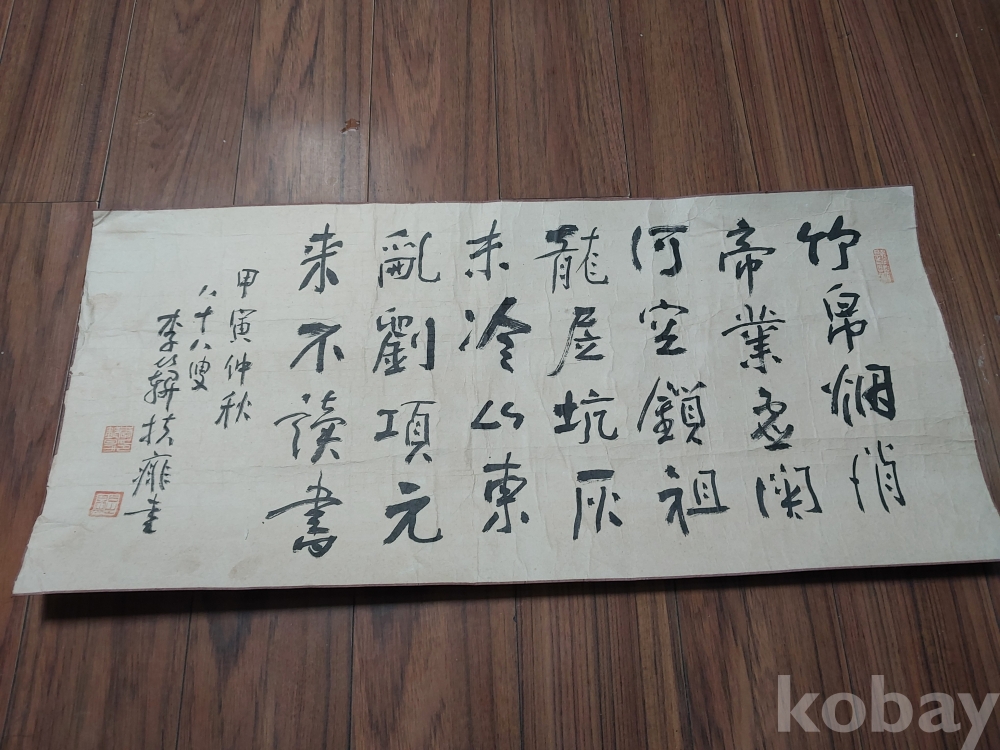 竹帛烟消
帝業虛関
河空鎖祖
龍居坑灰
未冷山東
亂劉項元
来不讀書
甲寅仲秋
八十八叟
李扶書
kobay